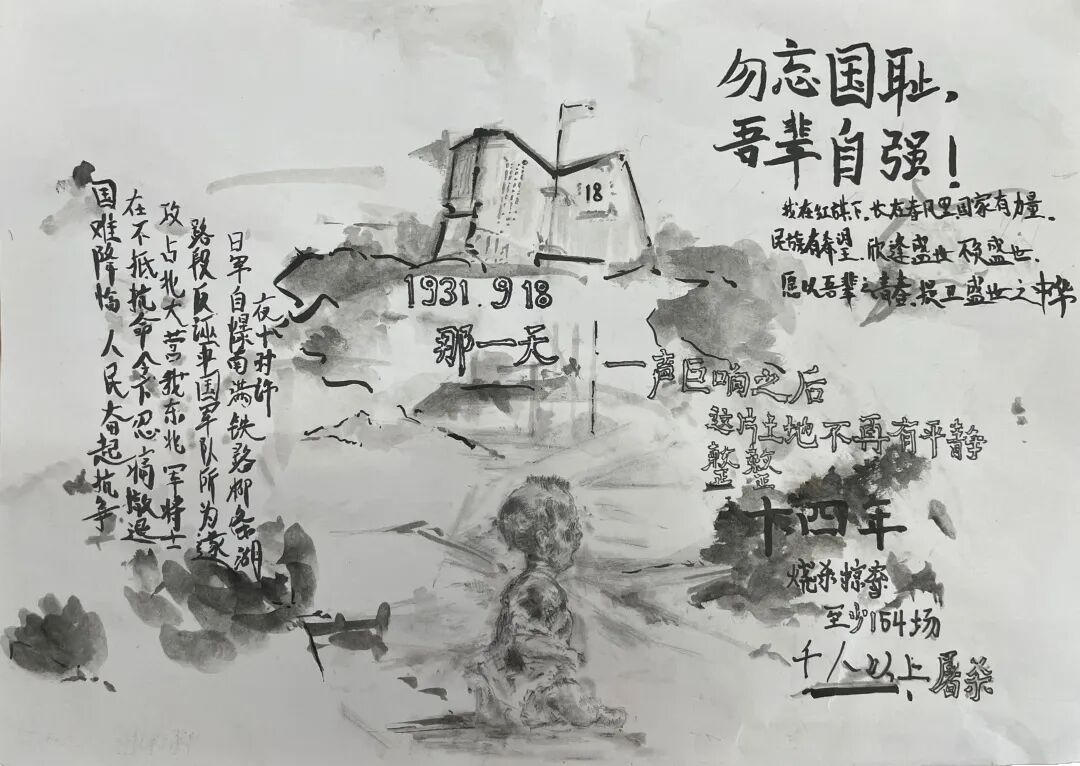 勿忘国耻,
吾辈自强!
我在红旗下,长在春风里国家有力量.
民族有希望.欣逢盛世不负盛世.
愿以吾辈之青春,捍卫盛世之中华
18
1931.9 18
那一天
夜十时许
日军自爆南满铁路柳条湖
路段反诬中国军队所为遂
攻占北大营我东北军将士
在不抵抗命令下忍痛撤退
国难降临 人民奋起抗争
一声巨响之后
这片土地不再有平静
整整
十四年
烧杀掠夺
至少154场
千人以上屠杀